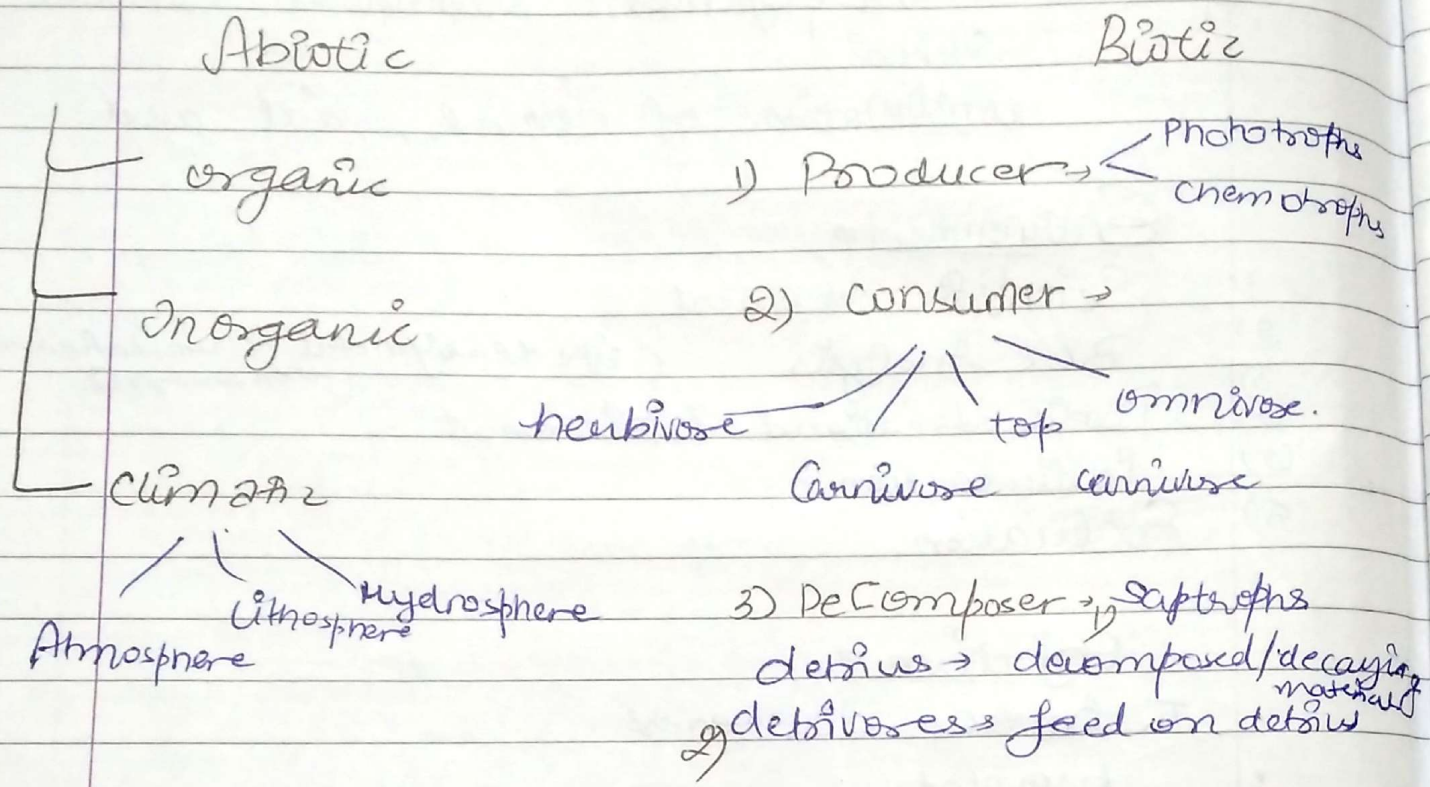 Abiotic
organic
Inorganic
Climatic
Atmosphere
Lithosphere
Hydrosphere
Biotic
1) Producer →
Phototrophs
Chemotrophs
2) Consumer →
herbivore
Carnivore
top
carnivore
omnivore.
3) DeComposer → 1) Saptrophs
detrius → decomposed/decaying
material
2) detrivores → feed on detrius